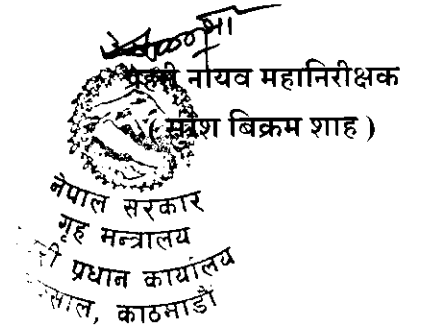 नायव महानिरीक्षक
बिक्रम शाह )
नेपाल सरकार
गृह मन्त्रालय
प्रधान कार्यालय
काठमाडौं